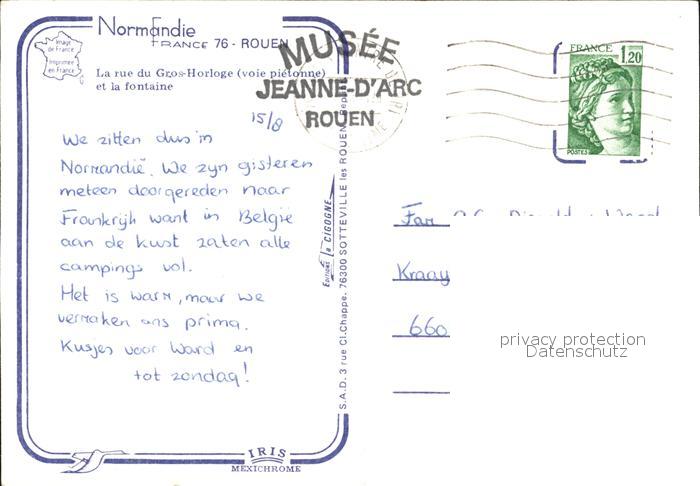 Normandie
FRANCE 76 - ROUEN
Image
de France
Imprimée
en France
La rue du Gros-Horloge (voie piétonne)
et la fontaine
MUSÉE
JEANNE-D'ARC
ROUEN
FRANCE
1,20
POSTES
15/8
We zitten dus in
Normandië. We zyn gisteren
meteen doorgereden naar
Frankrijk want in België
aan de kust zaten alle
campings vol.
Het is warm, maar we
vermaken ons prima.
Kusjes voor Ward en
tot zondag!
Editions La CIGOGNE
S.A.D. 3 rue Cl.Chappe. 76300 SOTTEVILLE les ROUEN
Fam
Kraay
660
privacy protection
Datenschutz
IRIS
MEXICHROME